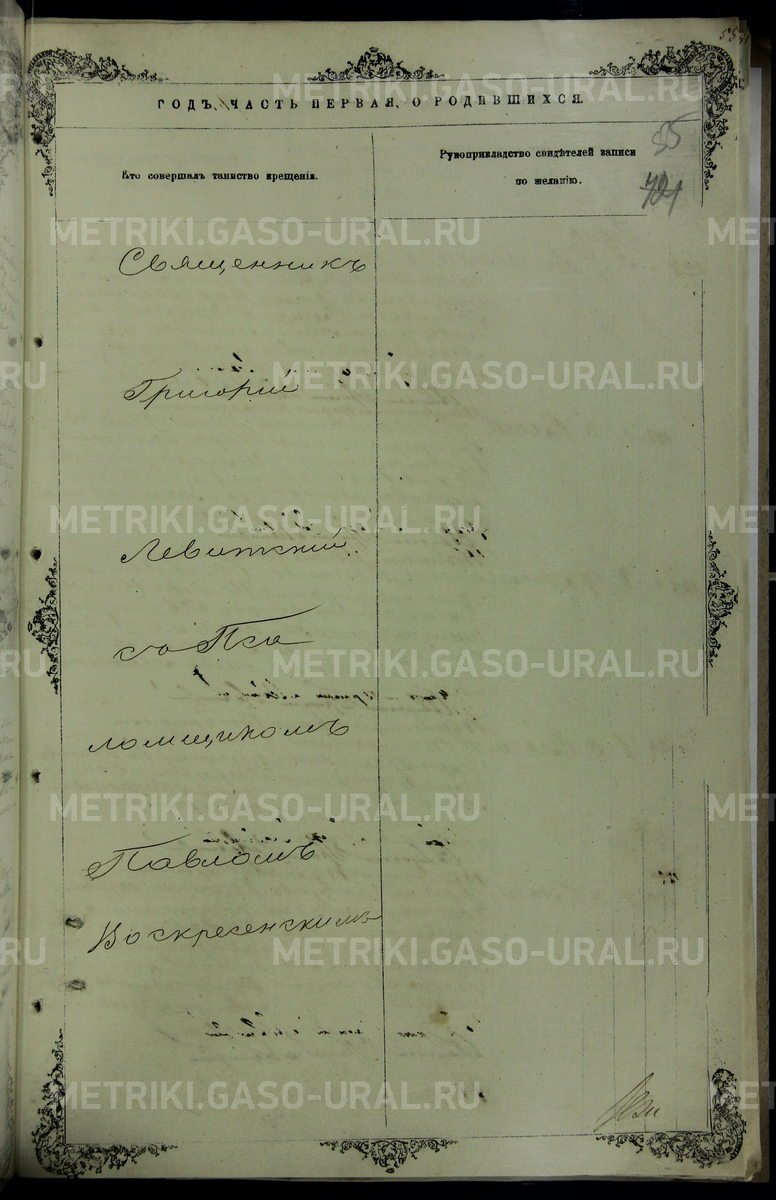 ГОДЪ, ЧАСТЬ ПЕРВАЯ, О РОДИВШИХСЯ.
Кто совершалъ таинство крещенія.
Рукоприкладство свидѣтелей записи
по желанію.
Священникъ
Григорій
Левитскій
съ Пса
ломщикомъ
Павломъ
Воскресенскимъ
METRIKI.GASO-URAL.RU